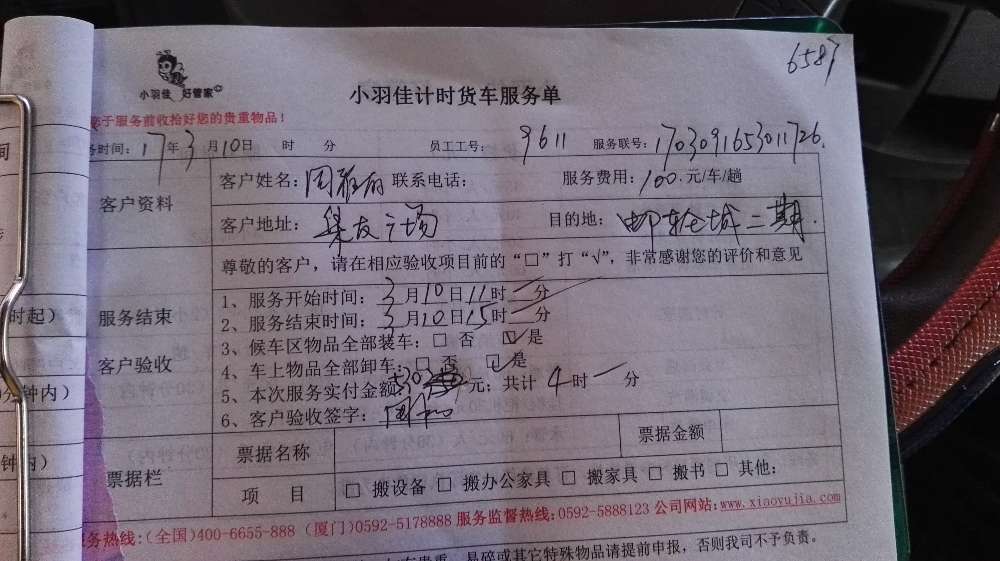 6587
小羽佳 好管家
小羽佳计时货车服务单
于服务前收拾好您的贵重物品！
务时间：17年3月10日 时 分 员工工号：9611 服务联号：1703091653011726
客户资料
客户姓名：周 联系电话： 服务费用：100.元/车/趟
客户地址：集友广场 目的地：邮轮城二期.
尊敬的客户，请在相应验收项目前的“□”打“√”，非常感谢您的评价和意见
时起）
服务结束
客户验收
分钟内）
1、服务开始时间：3月10日11时—分
2、服务结束时间：3月10日15时—分
3、候车区物品全部装车：□ 否 ☑ 是
4、车上物品全部卸车：□ 否 ☑ 是
5、本次服务实付金额：530元；共计 4时—分
6、客户验收签字：
钟内）
票据栏
票据名称 票据金额
项 目 □ 搬设备 □ 搬办公家具 □ 搬家具 □ 搬书 □ 其他：
务热线：(全国)400-6655-888 (厦门)0592-5178888 服务监督热线：0592-5888123 公司网站：www.xiaoyujia.com
贵重、易碎或其它特殊物品请提前申报，否则我司不予负责。